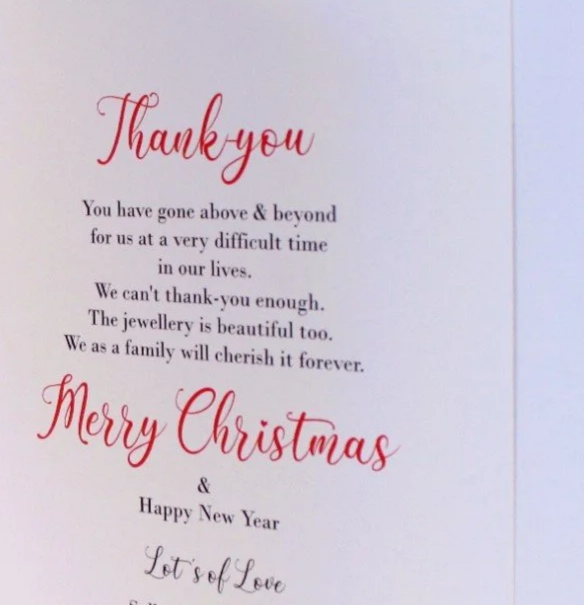 Thank-you
You have gone above & beyond
for us at a very difficult time
in our lives.
We can't thank-you enough.
The jewellery is beautiful too.
We as a family will cherish it forever.
Merry Christmas
&
Happy New Year
Lot's of Love